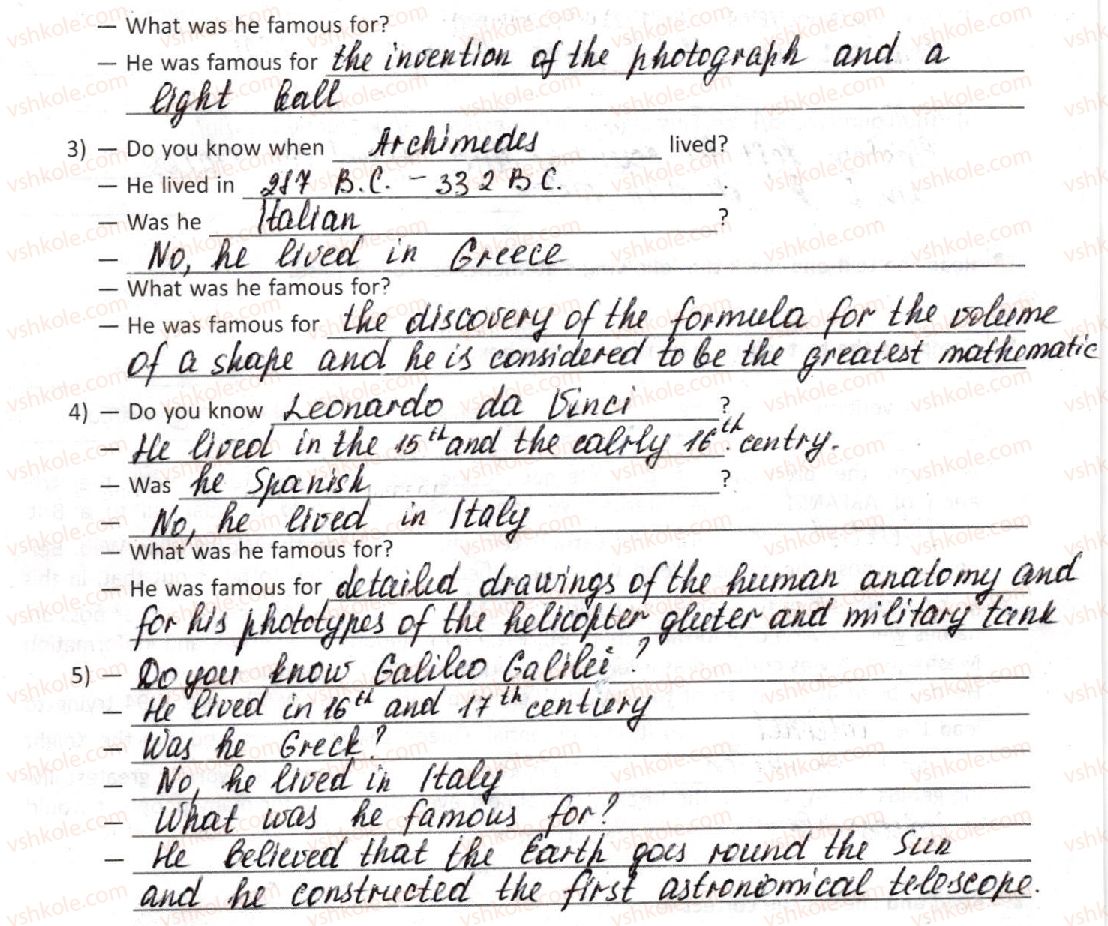 — What was he famous for?
— He was famous for the invention of the photograph and a
light ball
3) — Do you know when Archimedes lived?
— He lived in 287 B.C. – 332 B.C.
— Was he Italian ?
— No, he lived in Greece
— What was he famous for?
— He was famous for the discovery of the formula for the volume
of a shape and he is considered to be the greatest mathematic
4) — Do you know Leonardo da Vinci ?
— He lived in the 15th and the ealrly 16th centry.
— Was he Spanish ?
— No, he lived in Italy
— What was he famous for?
— He was famous for detailed drawings of the human anatomy and
for his phototypes of the helicopter gleter and military tank
5) — Do you know Galileo Galilei?
— He lived in 16th and 17th centuery
— Was he Greck?
— No, he lived in Italy
— What was he famous for?
— He believed that the Earth goes round the Sun
and he constructed the first astronomical telescope.